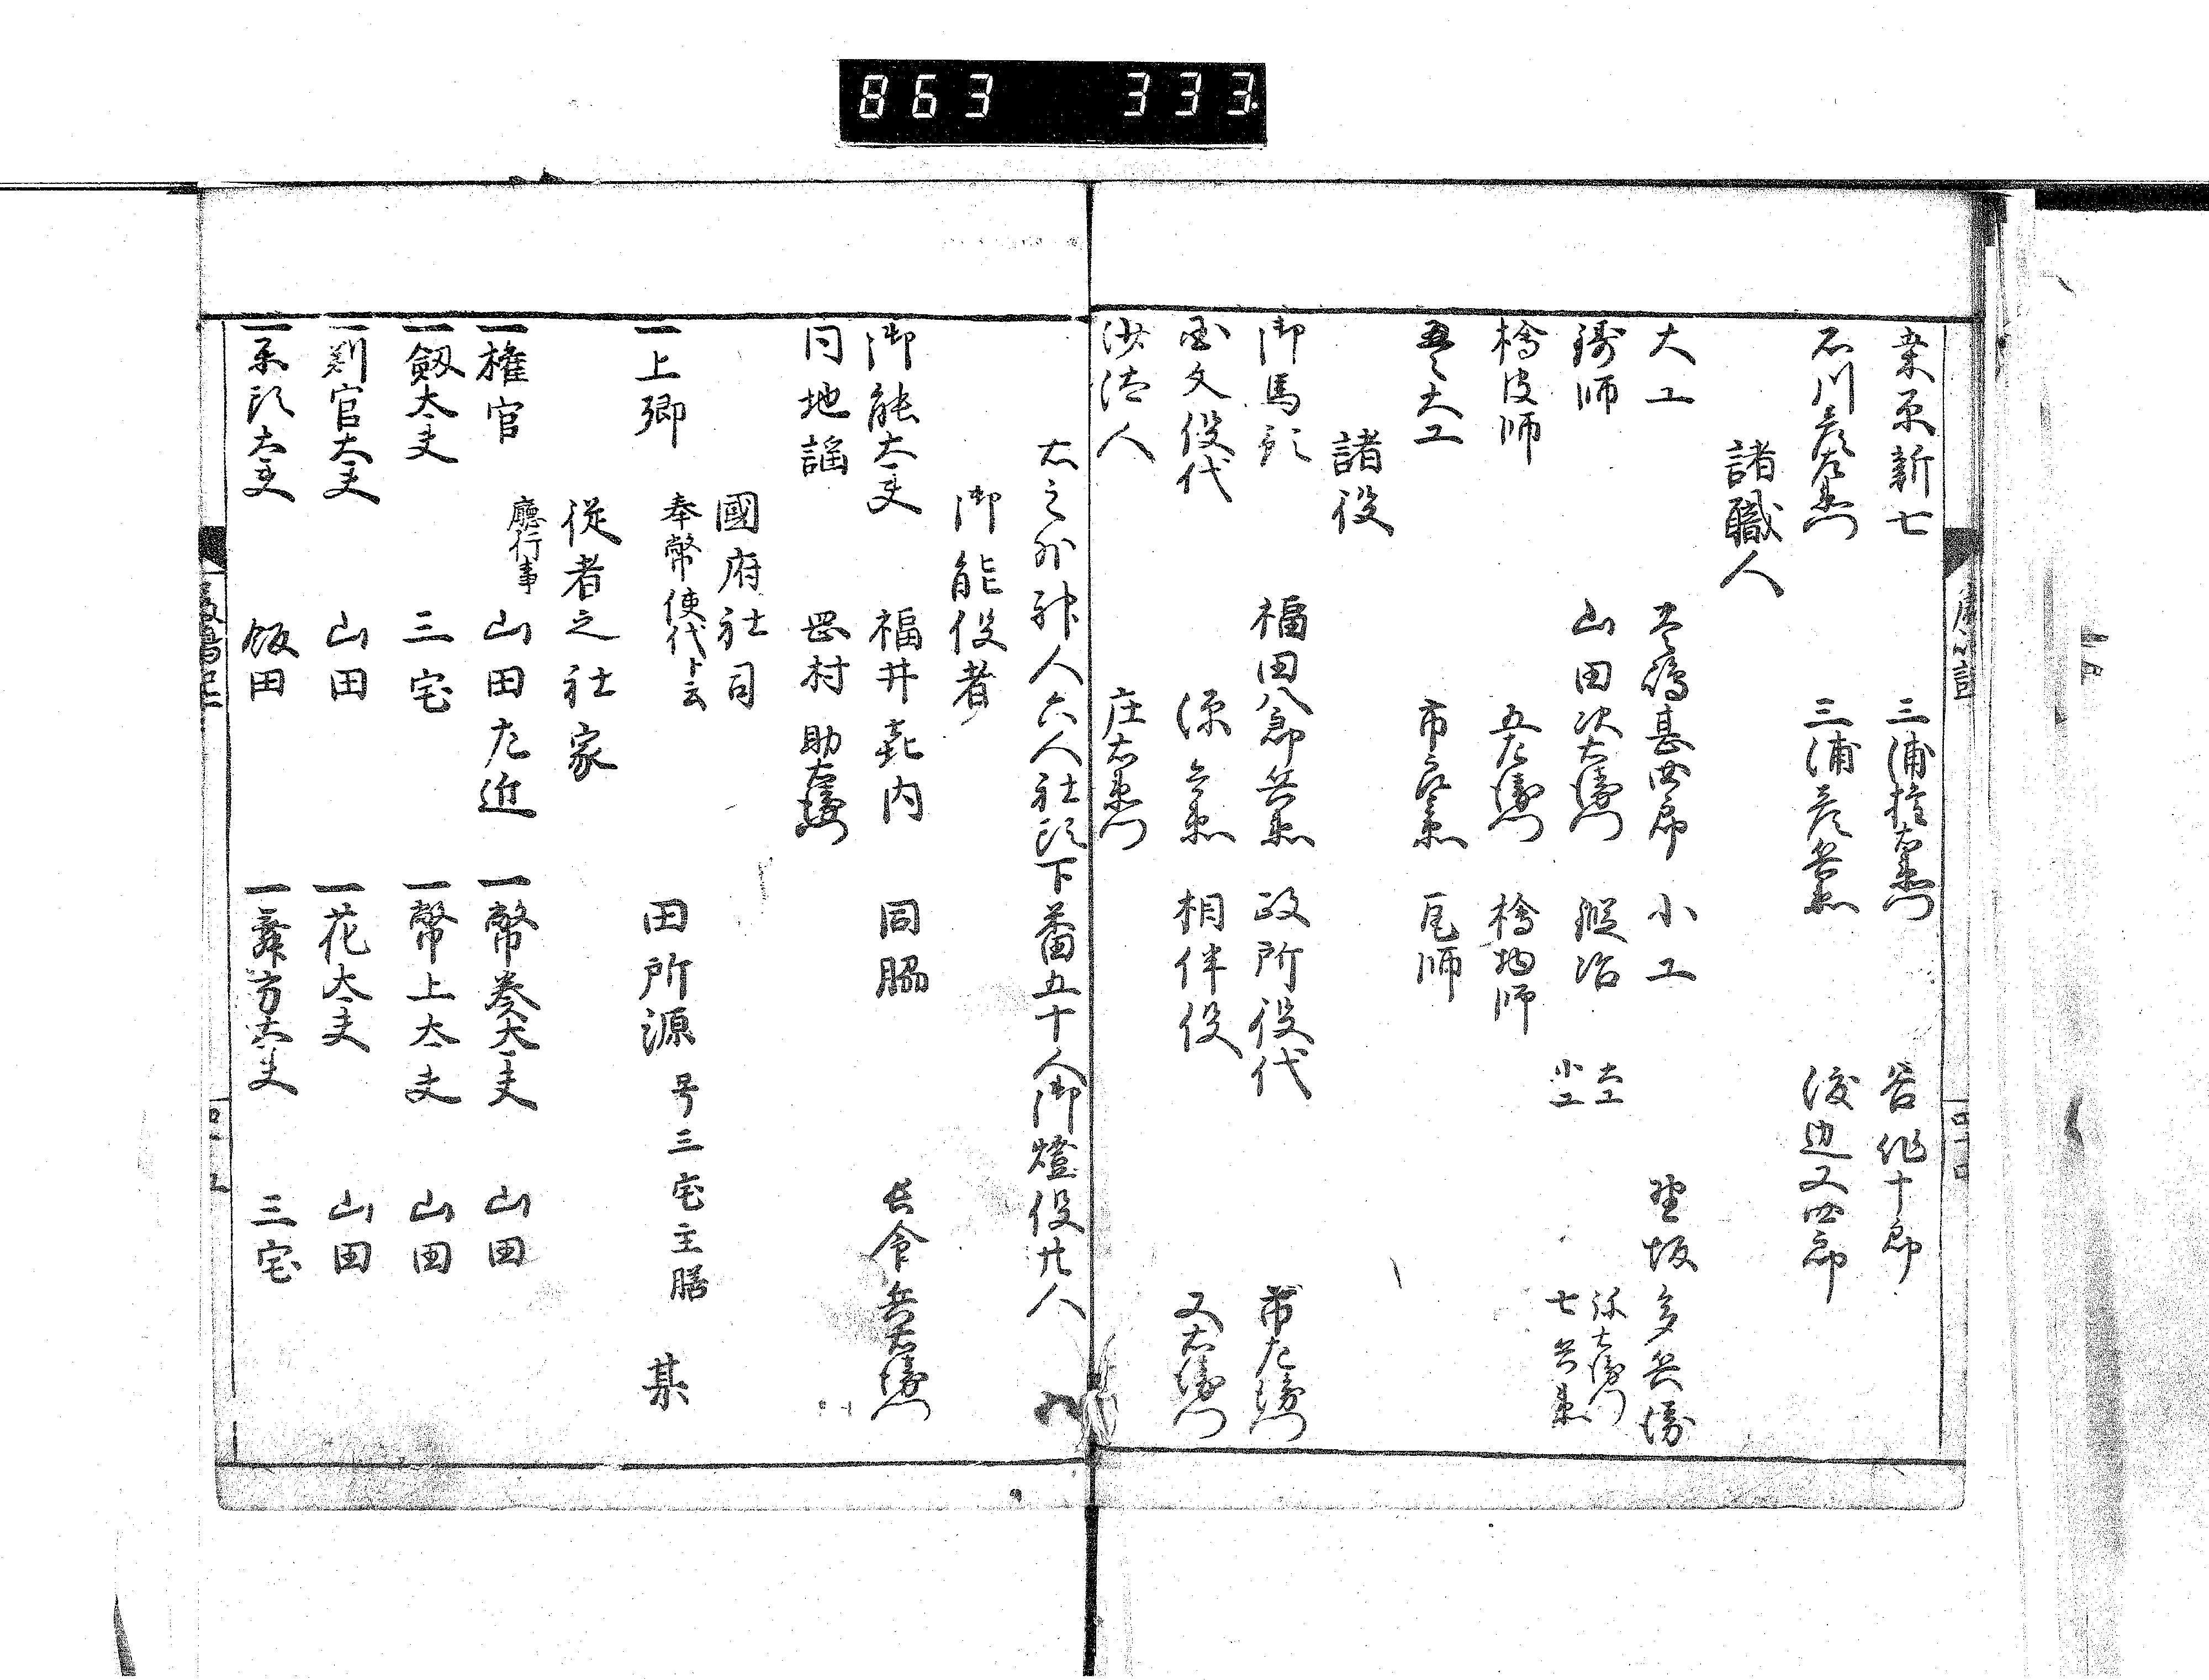 863 333
桑原新七 三浦権右衛門 谷作十郎
石川彦右衛門 三浦彦兵衛 渡辺又四郎
諸職人
大工 甚四郎 小工 坂多兵衛
鋳師 山田次右衛門 鍛冶 大工 弥右衛門
小工 七兵衛
檜皮師 五左衛門 檜物師
大工 市兵衛 瓦師
諸役
御馬 福田八郎兵衛 政所役代 市左衛門
文役代 源兵衛 相伴役 又右衛門
人 庄右衛門
右之外神人六人社頭下番五十人御燈役廿人
御能役者
御能太夫 福井喜内 同脇 長命兵右衛門
同地謡 岡村助右衛門
國府社司
奉幣使代ト云
一上卿 田所源 号三宅主膳 某
従者之社家
廳行事
一権官 山田左近 一幣巻太夫 山田
一劔太夫 三宅 一幣上太夫 山田
一判官太夫 山田 一花太夫 山田
一太夫 飯田 一舞方太夫 三宅